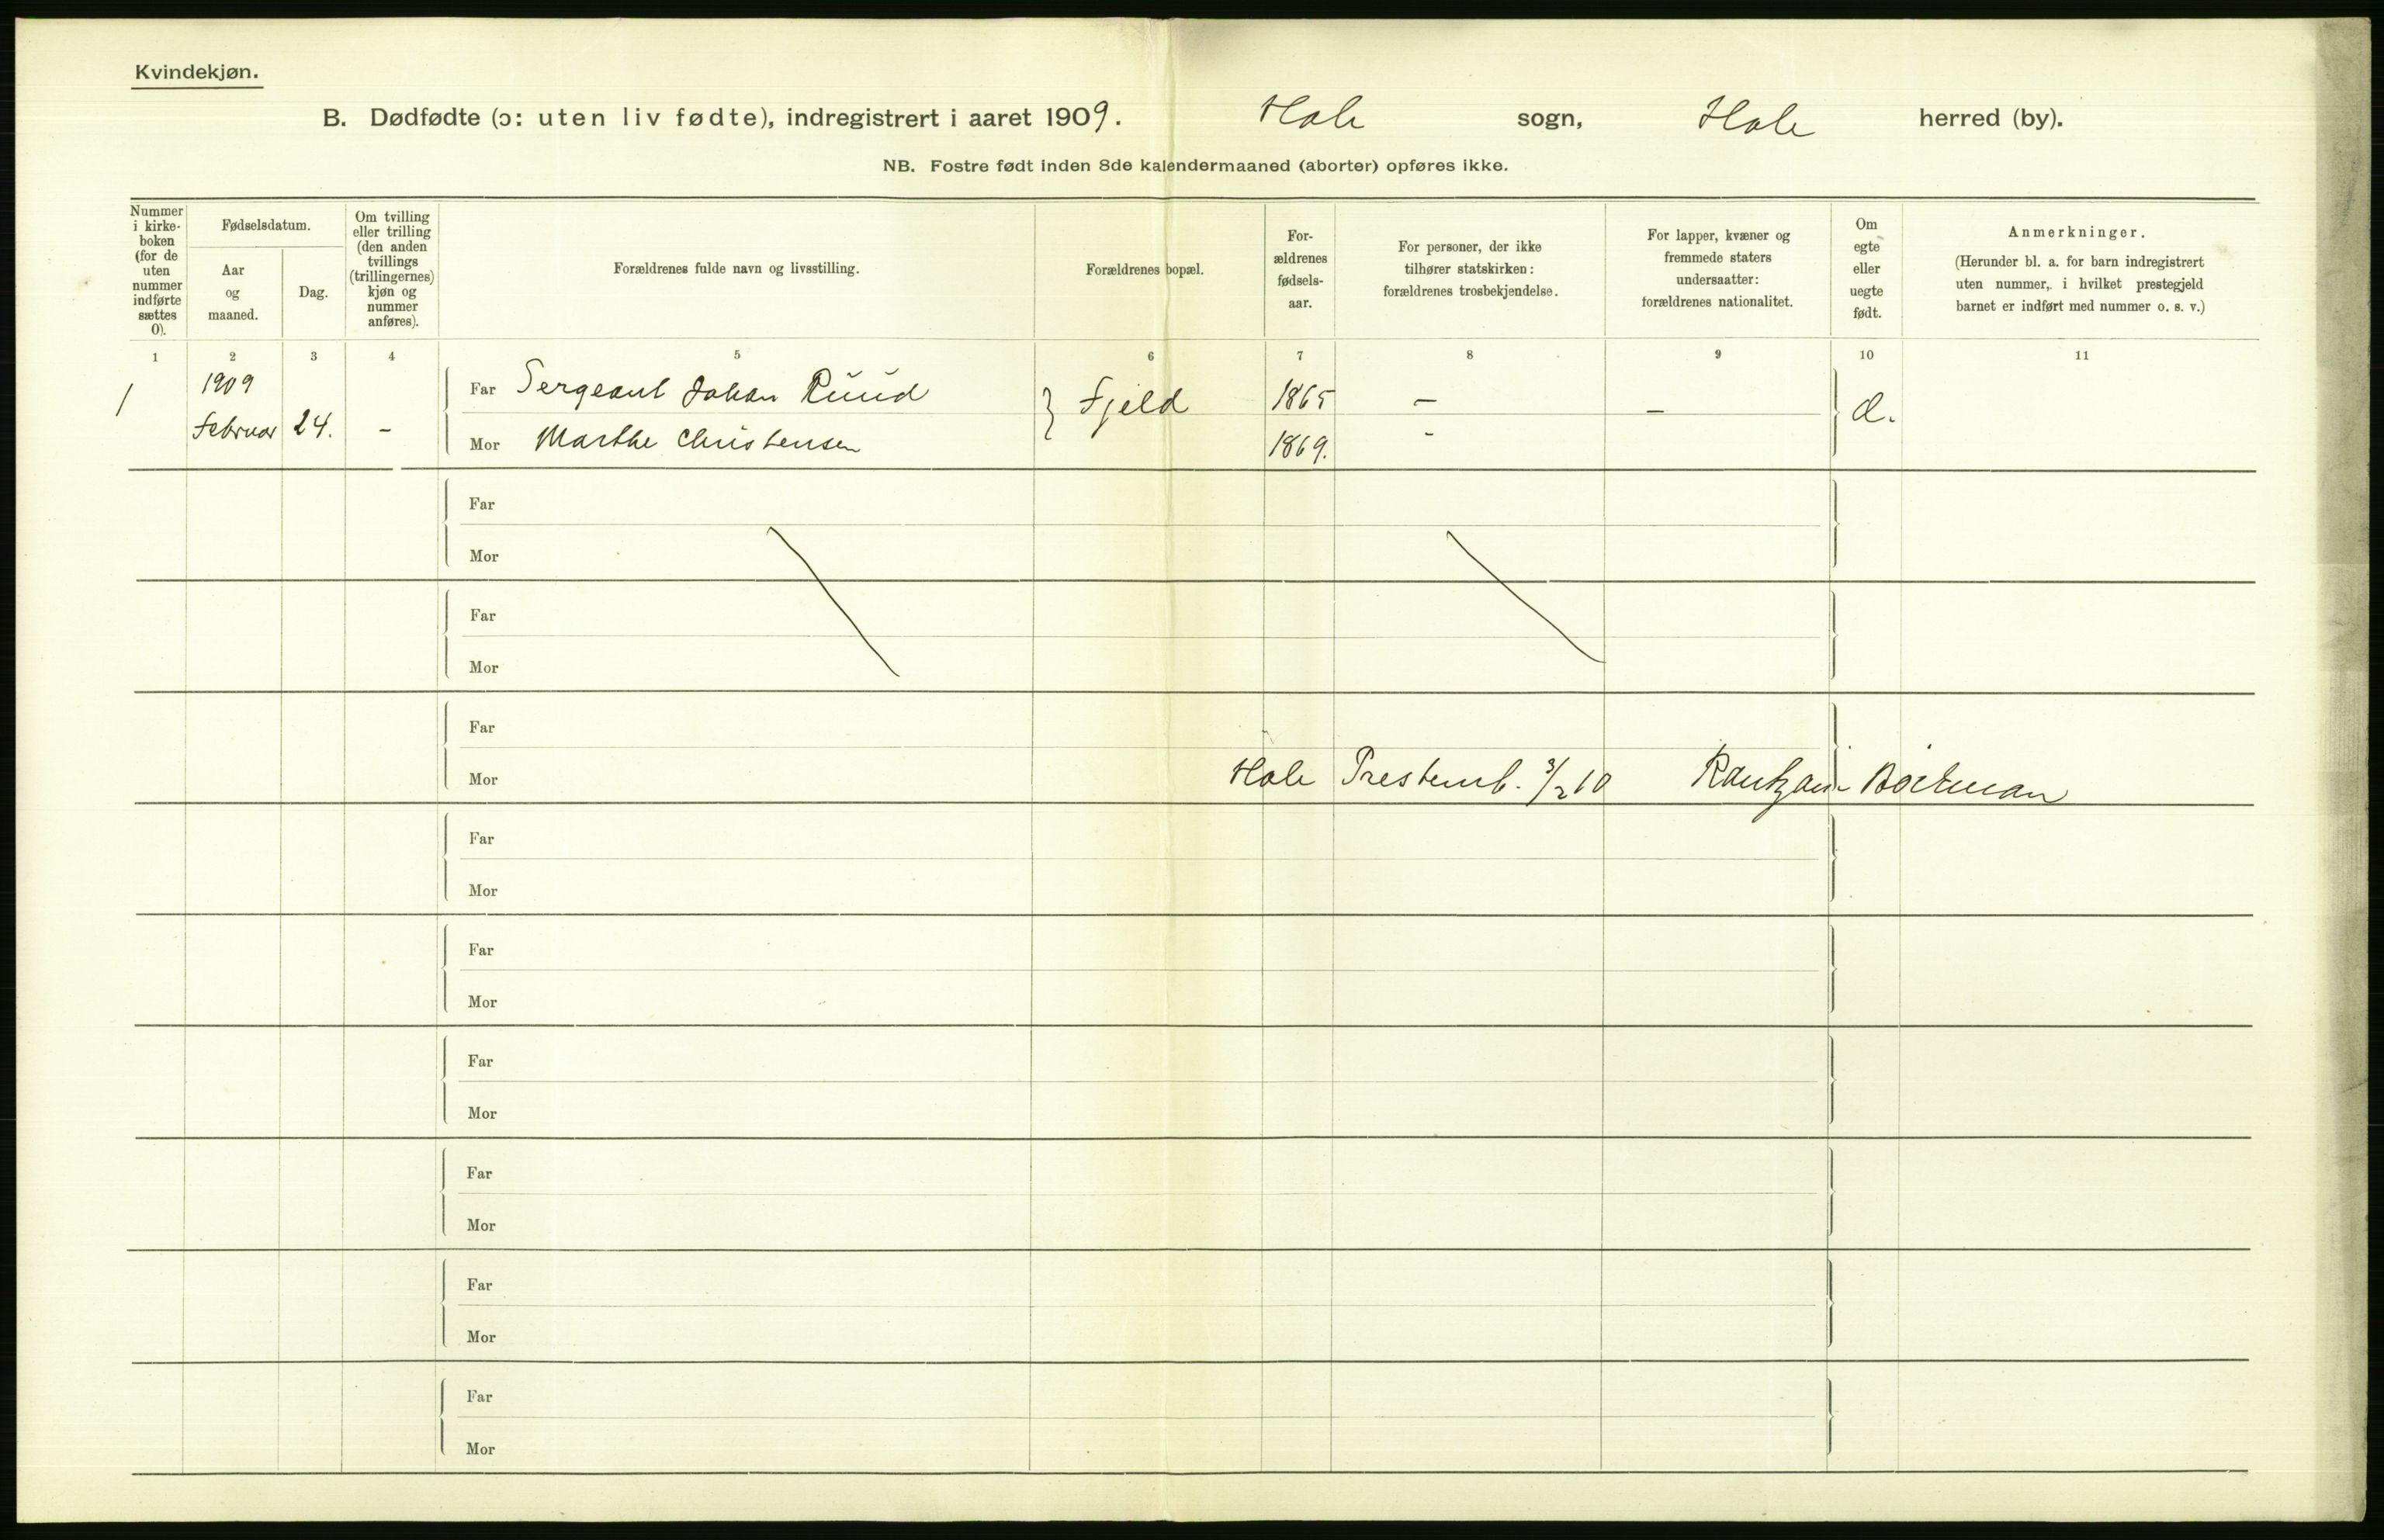 Kvindekjøn.
B. Dødfødte (ɔ: uten liv fødte), indregistrert i aaret 1909. Hole sogn, Hole herred (by).
NB. Fostre født inden 8de kalendermaaned (aborter) opføres ikke.
Nummer
i kirke-
boken
(for de
uten
nummer
indførte
sættes
0).
Fødselsdatum.
Aar
og
maaned.
Dag.
Om tvilling
eller trilling
(den anden
tvillings
(trillingernes)
kjøn og
nummer
anføres).
Forældrenes fulde navn og livsstilling.
Forældrenes bopæl.
For-
ældrenes
fødsels-
aar.
For personer, der ikke
tilhører statskirken:
forældrenes trosbekjendelse.
For lapper, kvæner og
fremmede staters
undersaatter:
forældrenes nationalitet.
Om
egte
eller
uegte
født.
Anmerkninger.
(Herunder bl. a. for barn indregistrert
uten nummer, i hvilket prestegjeld
barnet er indført med nummer o. s. v.)
1 2 3 4 5 6 7 8 9 10 11
1 1909 Far Sergeant Johan Ruud Fjeld 1865 – – æ.
Februar 24. – Mor Marthe Christensen 1869. -
Far
Mor
Far
Mor
Far
Mor Hole Prestemb. 3/2 10 Rantzau Bøckman
Far
Mor
Far
Mor
Far
Mor
Far
Mor
Far
Mor
Far
Mor